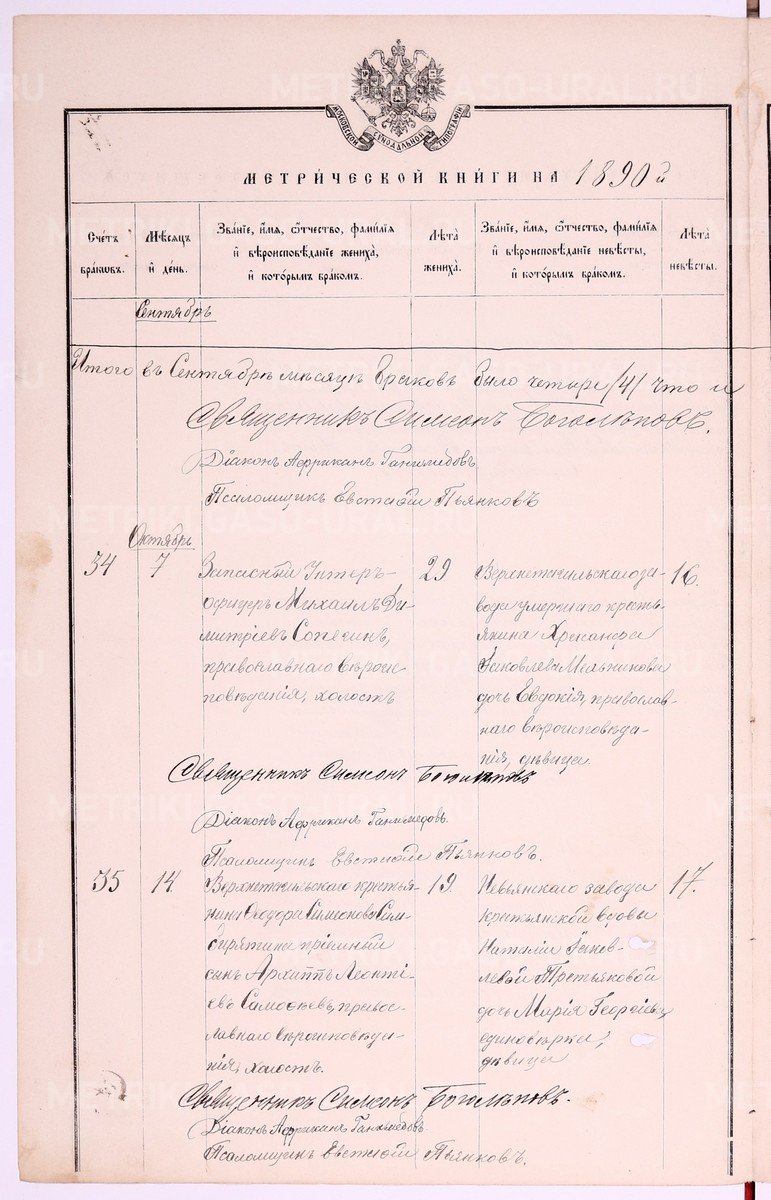 МОСКОВСКОЙ СѴНОДАЛЬНОЙ ТИПОГРАФІИ
МЕТРИ́ЧЕСКОЙ КНИ́ГИ НА 1890 й
Сче́тъ бра́кѡвъ.
Мѣ́сѧцъ и҆ де́нь.
Зва́нїе, и҆́мѧ, ѻ҆́тчество, фамѝлїѧ
и҆ вѣроисповѣ́данїе жениха̀,
и҆ кото́рымъ бра́комъ.
Лѣ́та жениха̀.
Зва́нїе, и҆́мѧ, ѻ҆́тчество, фамѝлїѧ
и҆ вѣроисповѣ́данїе невѣ́сты,
и҆ кото́рымъ бра́комъ.
Лѣ́та невѣ́сты.
Сентябрь
Итого въ Сентябрѣ мѣсяцѣ браковъ было четыре /4/ что и
Священникъ Симеонъ Боголѣповъ.
Діаконъ Африканъ Ганимедовъ
Псаломщикъ Евстафій Пьянковъ
Октябрь
34
7
Запасный Унтеръ-
офицеръ Михаилъ Ди-
митріевъ Сопегинъ,
православнаго вѣроис
повѣданія, холостъ
29
Верхнетагильскаго за-
вода умершаго кресть-
янина Хрисанфа
Іаковлева Мельникова
дочь Евдокія, православ-
наго вѣроисповѣда-
нія, дѣвица
16.
Священникъ Симеонъ Боголѣповъ
Діаконъ Африканъ Ганимедовъ.
Псаломщикъ Евстафій Пьянковъ.
35
14
Верхнетагильскаго крестья-
нина Ѳеодора Симеонова Сим-
бирятина пріемный
сынъ Архиппъ Леонті-
евъ правос-
лавнаго вѣроисповѣда-
нія, холостъ.
19
Невьянскаго завода
крестьянской вдовы
Наталіи Іаков-
левой Третьяковой
дочь Марія Георгіева,
единовѣрка,
дѣвица
17.
Священникъ Симеонъ Боголѣповъ.
Діаконъ Африканъ Ганимедовъ
Псаломщикъ Евстафій Пьянковъ.
METRIKI.GASO-URAL.RU